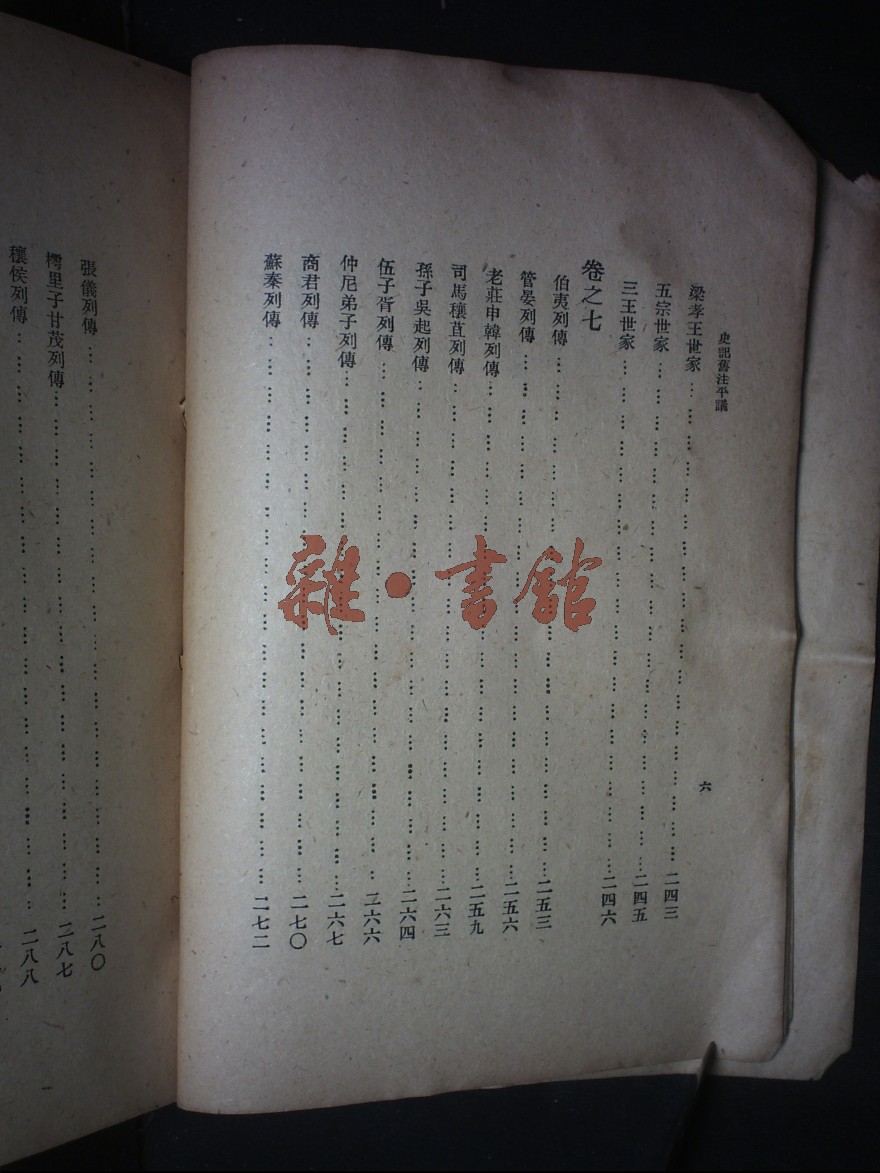 史記舊注平議
六
梁孝王世家……二四三
五宗世家……二四五
三王世家……二四六
卷之七
伯夷列傳……二五三
管晏列傳……二五六
老莊申韓列傳……二五九
司馬穰苴列傳……二六三
孫子吳起列傳……二六四
伍子胥列傳……二六六
仲尼弟子列傳……二六七
商君列傳……二七〇
蘇秦列傳……二七二
張儀列傳……二八〇
樗里子甘茂列傳……二八七
穰侯列傳……二八八
雜·書館